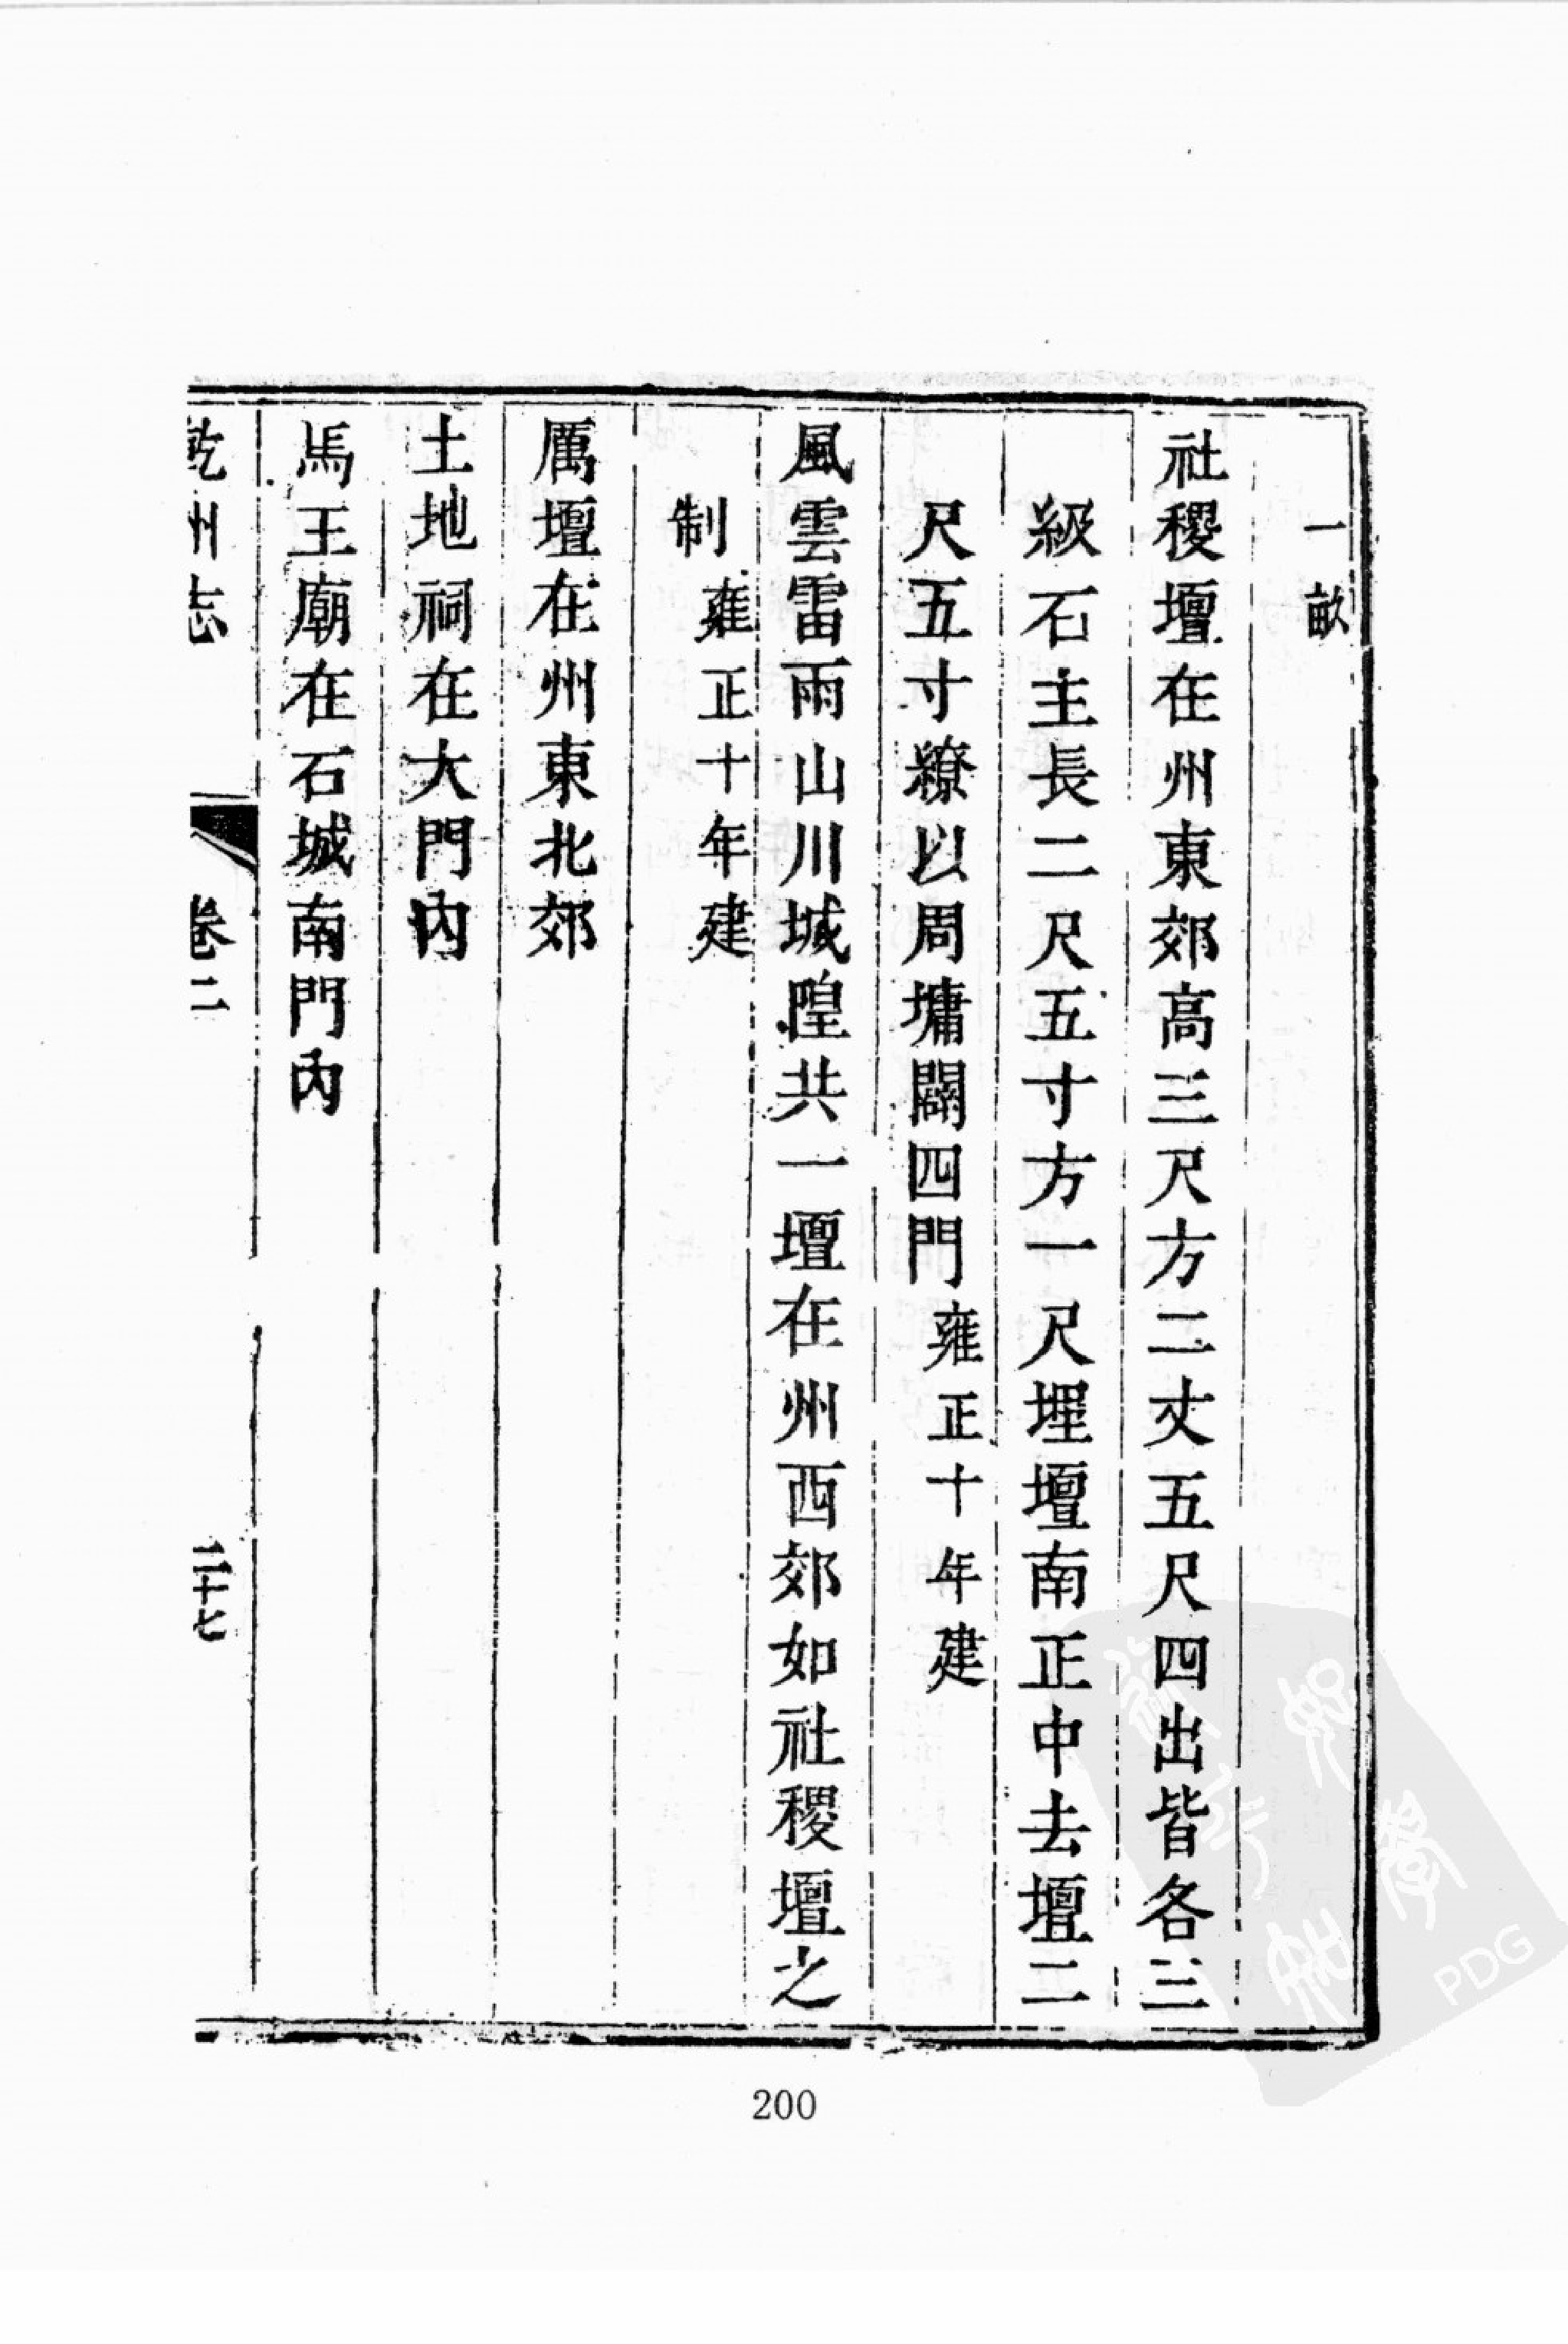 一畝
社稷壇在州東郊高三尺方二丈五尺四出皆各三
級石主長二尺五寸方一尺埋壇南正中去壇二
尺五寸繚以周墉闢四門雍正十年建
風雲雷雨山川城隍共一壇在州西郊如社稷壇之
制雍正十年建
厲壇在州東北郊
土地祠在大門內
馬王廟在石城南門內
乾州志 卷二 二十七
200
PDG